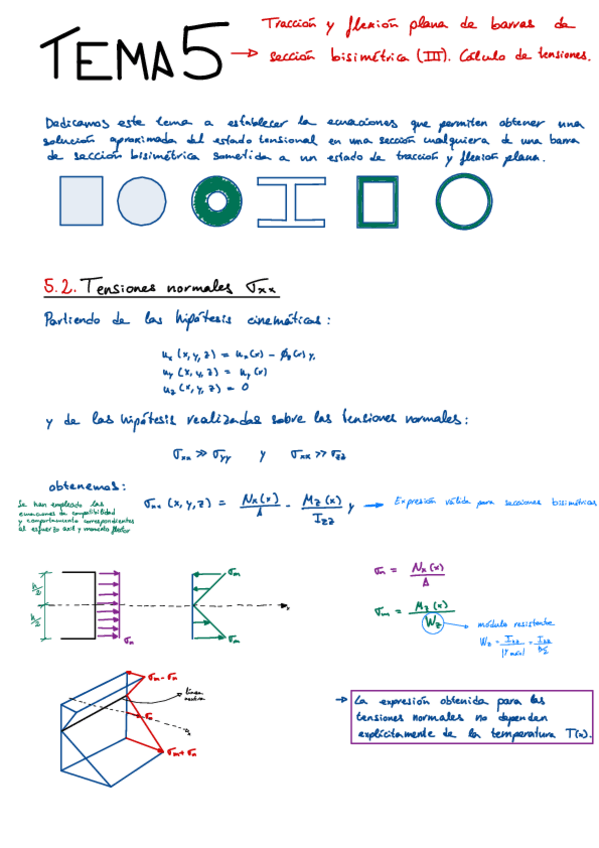 TEMA 5
→ Tracción y flexión plana de barras de
sección bisimétrica (III). Cálculo de tensiones.
Dedicamos este tema a establecer la ecuaciones que permiten obtener una
solución aproximada del estado tensional en una sección cualquiera de una barra
de sección bisimétrica sometida a un estado de tracción y flexión plana.
5.2. Tensiones normales σxx
Partiendo de las hipótesis cinemáticas:
ux (x,y,z) = ux(x) - ϕz(x) y,
uy (x,y,z) = uy(x)
uz (x,y,z) = 0
y de las hipótesis realizadas sobre las tensiones normales:
σxx >> σyy y σxx >> σzz
obtenemos:
Se han empleado las
ecuaciones de compatibilidad
y comportamiento correspondientes
al esfuerzo axil y momento flector
σxx (x,y,z) = Nx(x)/A - Mz(x)/Izz y → Expresión válida para secciones bisimétricas
h/2
h/2
σn
σm
σm
x
σn = Nx(x)/A
σm = Mz(x)/Wz
módulo resistente
Wz = Izz/|ymáx| = Izz/h/2
σm - σn
línea
neutra
σn
x
σm + σn
→ La expresión obtenida para las
tensiones normales no dependen
explícitamente de la temperatura T(x).